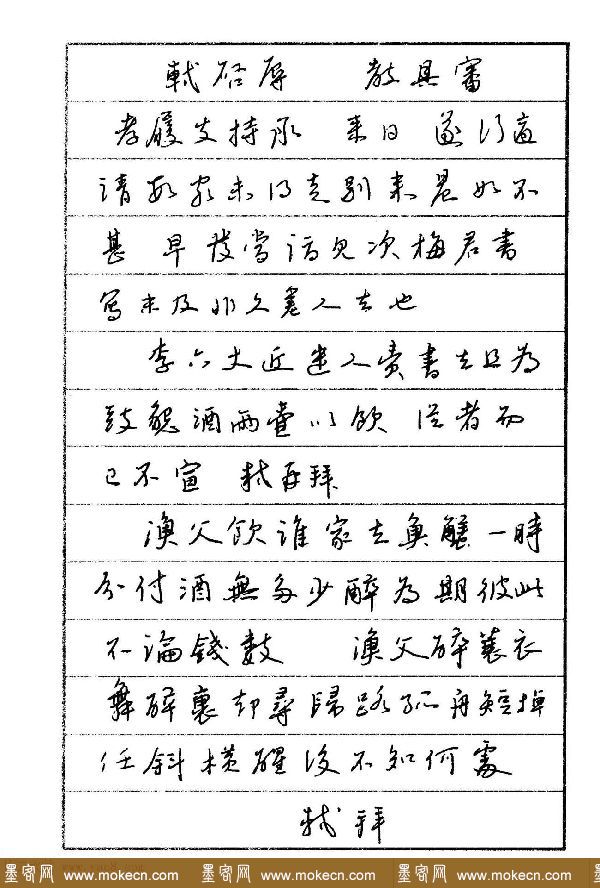 軾啓辱 教具審
孝履支持承 来日 遂行適
請數客未得走別来晨如不
甚 早發當詣見次梅君書
寫未及非久差人去也
李六丈近遣人賫書去且為
致 酒兩壷以飲 從者而
已不宣 軾再拜
漁父飲誰家去魚蠏一時
分付酒無多少醉為期彼此
不論錢數 漁父醉蓑衣
舞醉裏却尋歸路孤舟短棹
任斜横醒後不知何處
軾拜
墨客网 www.mokecn.com 墨客网 www.mokecn.com 墨客网 www.mokecn.com 墨客网